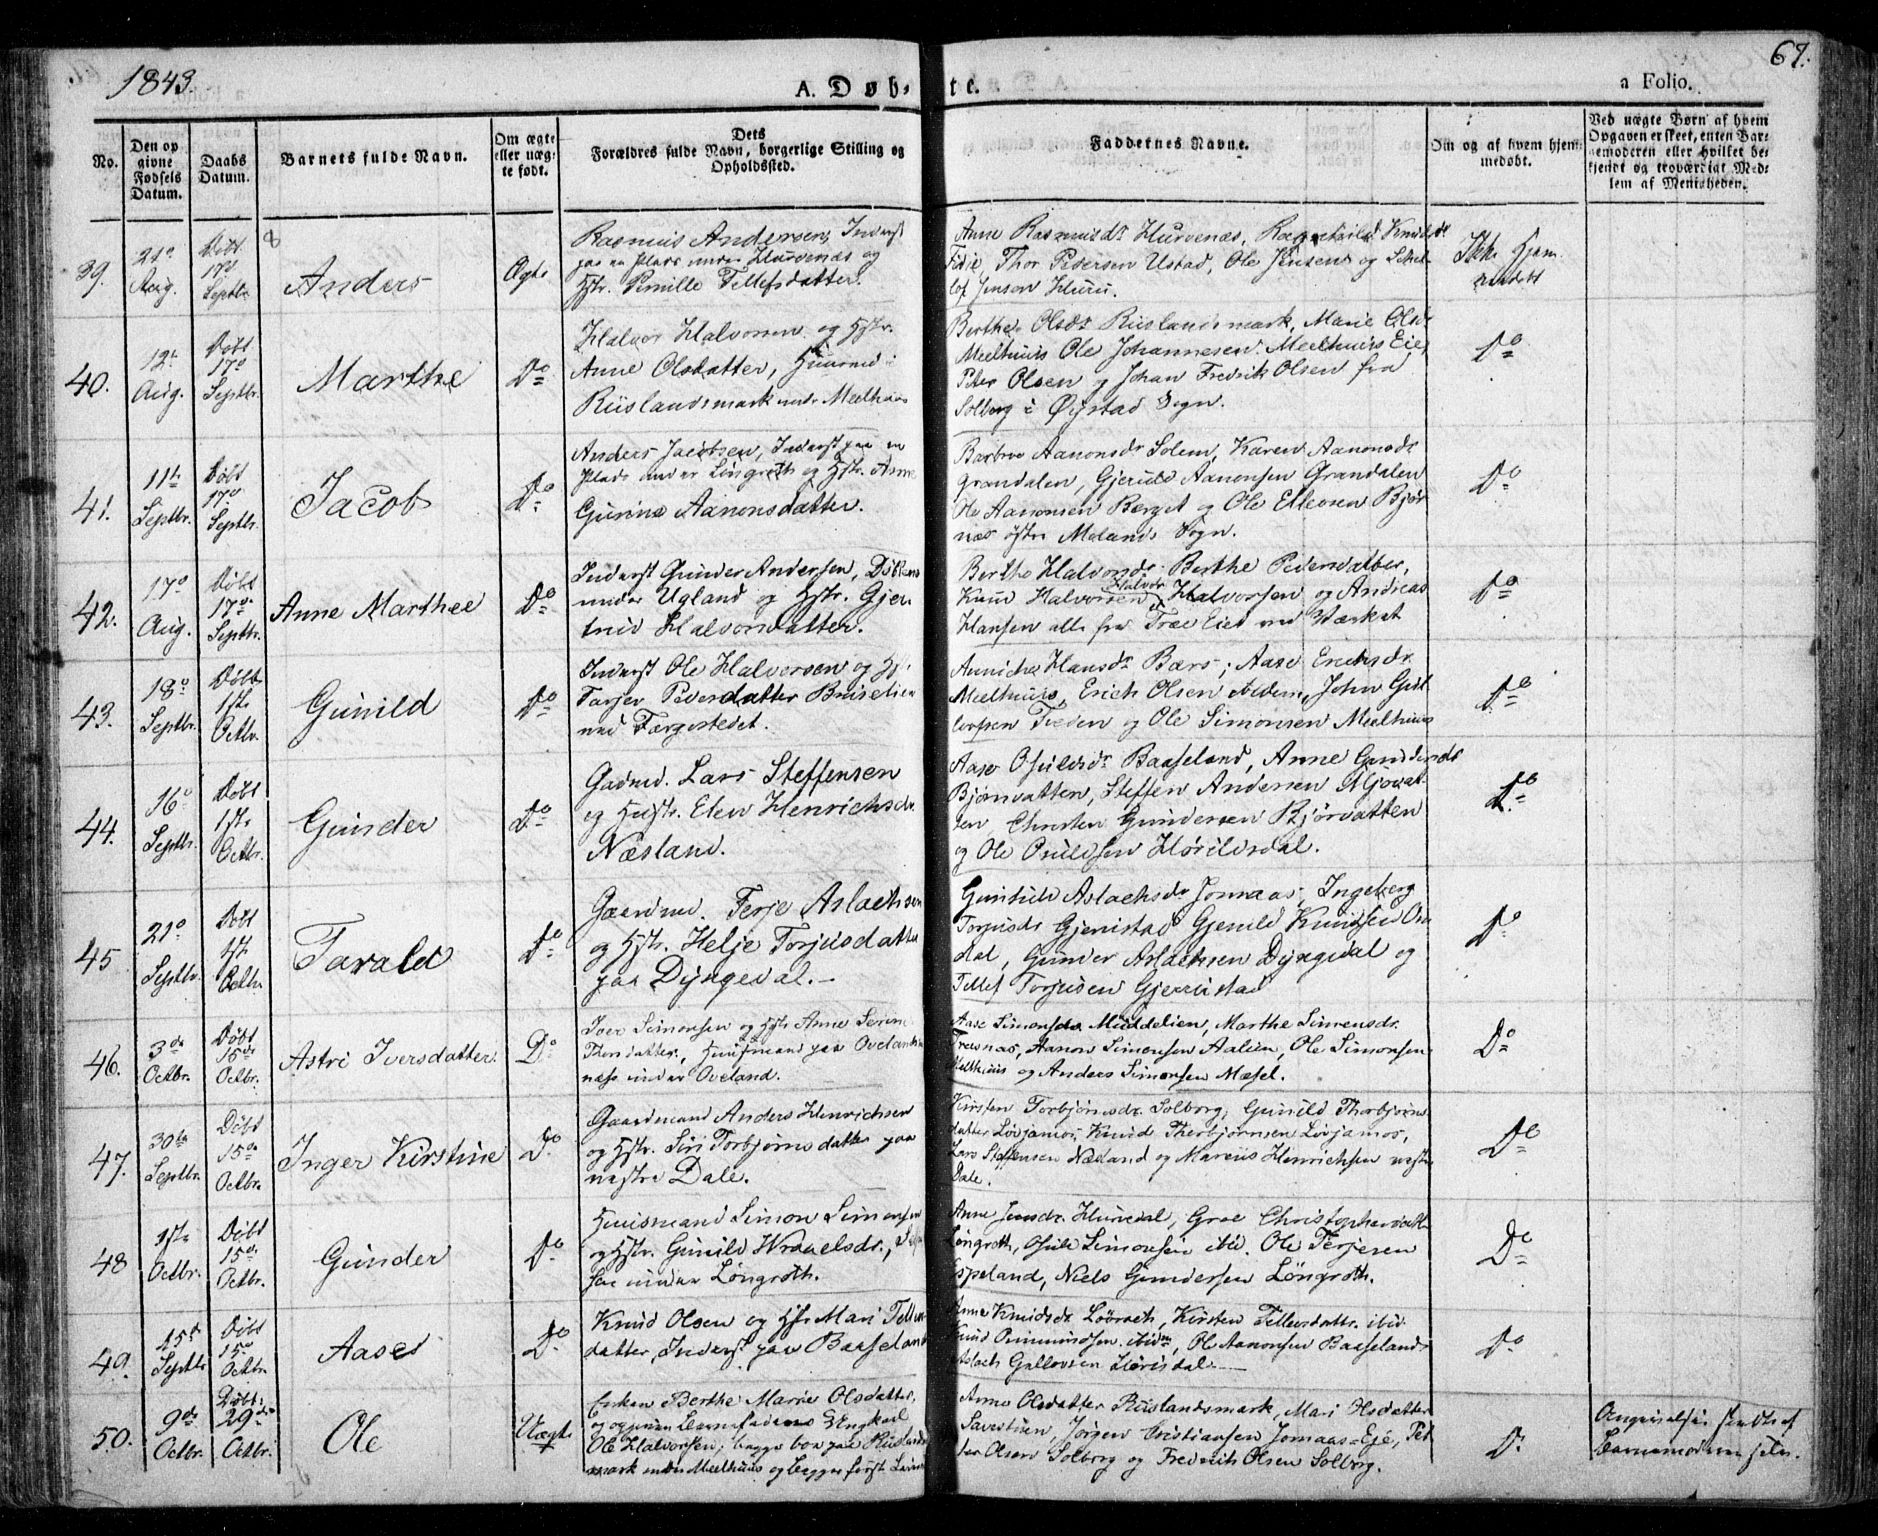 1843.
A. Døb-
te.
67.
a Folio.
No.
Den op
givne
Fødsels
Datum.
Daabs
Datum.
Barnets fulde Navn.
Om ægte
eller uæg-
te født.
Dets
Forældres fulde Navn, borgerlige Stilling og
Opholdssted.
Faddernes Navne.
Om og af hvem hjem-
medøbt.
Ved uægte Børn af hvem
Opgaven er skeet, enten Bar-
nemoderen eller hvilket be-
kjendt og troværdigt Med-
lem af Menigheden.
39.
21
Aug.
Døbt
17
Septbr
Anders
Ægte
Rasmus Andersen, Inderst
paa en Plads under Hurvenæs og
Hstr. Pernille Tellefsdatter.
Anne Rasmusdr Hurvenæs, Knudsdr
Thor Pedersen Ustad, Ole Jensen og
Jensen
Ikke Hjem
medøbt
40.
12
Aug.
Døbt
17
Septbr.
Marthe
Do
Halvor Halvorsen og Hstr.
Anne Olsdatter, Huusmd i
Riislandsmark under Meelhuus
Berthe Olsdr Riislandsmark, Marie Olsdr
Meelhuus Ole Johannesen Meelhuus Eie,
Peter Olsen og Johan Fredrik Olsen fra
Solborg i Øyestad Sogn.
Do
41.
11te
Septbr.
Døbt
17
Septbr.
Jacob
Do
Anders Jacobsen, Inderst paa en
Plads under Løngroth og Hstr. Anne
Gurine Aanonsdatter.
Barbro Aanonsdr Solem, Karen Aanonsdr
Grandalen, Aanonsen Grandalen
Ole Aanonsen Berget og Ole Ellevsen Bjør
næs østre Molands Sogn.
Do
42.
17
Aug.
Døbt
17
Septbr.
Anne Marthee
Do
Inderst Gunder Andersen,
under Ugland og Hstr. Gjer
trud Halvorsdatter.
Berthe Halvorsdr Berthe Pedersdatter,
Knud Halvorsen Halvor Halvorsen og Andreas
Hansen alle fra Træe Eiet ved Værket
Do
43.
18
Septbr.
Døbt
1ste
Octbr.
Gunild
Do
Inderst Ole Halvorsen og Hstr.
Pedersdatter
ved Færgestedet.
Hansdr Aase Erichsdr
Meelhuus, Erich Olsen ibidem, John
og Ole Simonsen Meelhuus
Do
44.
16
Septbr.
Døbt
1ste
Octbr.
Gunder
Do
Gadmd. Lars Steffensen
og Hustr. Elen Henrichsdr
Næsland.
Aase Osuldsdr Baaseland, Anne Gundersdr
Bjørnvatten, Steffen Andersen
ten Christen Gundersen Bjørvatten
og Ole Osuldsen
Do
45
21
Septbr.
Døbt
1ste
Octbr.
Tarald
Do
Gaardmd. Terje Aslachsen
og Hstr. Helje Torjusdatter
paa Dyngedal.
Gunhild Aslachsdr Jomaas, Ingeborg
Torjusdr Gjerustad Knudsen
dal, Gunder Aslachsen Dyngedal og
Tellef Torjusen Gjerrustad
Do
46.
3de
Octbr.
Døbt
15de
Octbr.
Astri Iversdatter
Do
Iver Simonsen og Hstr Anne
Thorsdatter, Huusmand paa Ovelands
næss under Oveland.
Aase Simonsdr. Muddelien, Marthe Simonsdr.
Trevnæs, Aanon Simonsen Aalien, Ole Simonsen
Melthuus og Anders Simonsen Mæsel.
Do
47.
30te
Septbr.
Døbt
15de
Octbr.
Inger Kirstine
Do.
Gaardmand Anders Henrichsen
og Hstr. Siri Torbjørnsdatter paa
vestre Dale.
Kirsten Torbjørnsdr. Solborg, Gunild Thorbjørns
datter Løvjamos, Knud Thorbjørnsen Løvjamos,
Lars Steffensen Næsland og Marcus Henrichsen vestre
Dale.
Do
48
1ste
Octbr.
Døbt
15de
Octbr.
Gunder
Do
Huusmand Simon Simonsen
og Hstr. Gunild Wraaelsdr.,
under Løngroth.
Anne Jensdr. Hurvedal, Groe Christophersdatter
Løngroth, Osuld Simonsen ibid. Ole Terjesen
Espeland, Niels Gundersen Løngroth.
Do
49.
15d
Septbr
Døbt
15
Octbr.
Aase
Do
Knud Olsen og Hstr Mari Tellevs
datter, Inderst paa Baaseland
Anne Knudsdr. Kirsten Tellevsdattr. ibid.
Knud ibidm, Ole Aanonsen Baaseland
Aslach Gullovsen
Do
50.
9de
Octbr.
Døbt
29de
Octbr.
Ole
Uægte
Enken Berthe Marie Olsdatter,
og opgiven Barnefader Ungkarl
Ole Halvorsen, begge boe paa Riislands
mark under Meelhuus og begges første Leiermaal
Anne Olsdatter Riislandsmark, Mari Olsdatter
Jørgen Cristiansen Jomaas-Eje, Ped
der Olsen Solborg og Fredrik Olsen Solborg.
Do
Angivelsen skeedte af
Barnemoderen selv.